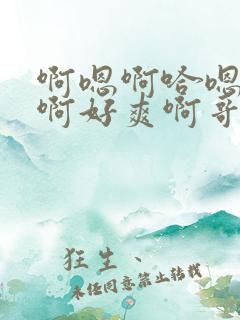 啊嗯啊哈嗯
啊好爽啊哥
狂生、
未经同意禁止转载